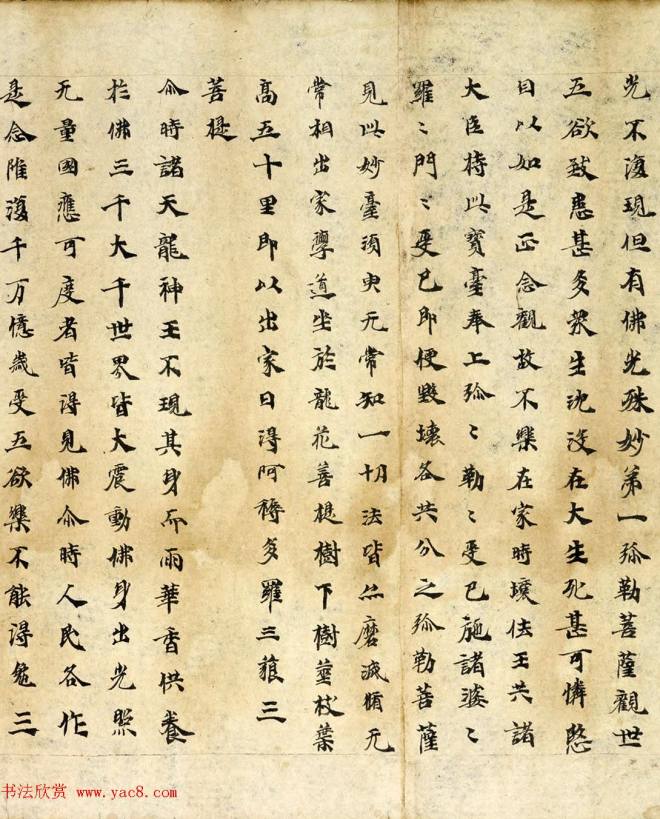 光不復現但有佛光殊妙第一弥勒菩薩觀世
五欲致患甚多衆生沈没在大生死甚可憐愍
自以如是正念觀故不樂在家時壤佉王共諸
大臣持此寶臺奉上弥〻勒〻受已施諸婆〻
羅〻門〻受已即便毀壞各共分之弥勒菩薩
見此妙臺須臾无常知一切法皆亦磨滅脩无
常相出家學道坐於龍花菩提樹下樹莖枝葉
高五十里即以出家日得阿耨多羅三藐三
菩提
尒時諸天龍神王不現其身而雨華香供養
於佛三千大千世界皆大震動佛身出光照
无量國應可度者皆得見佛尒時人民各作
是念雖復千万億歲受五欲樂不能得免三
书法欣赏 www.yac8.com